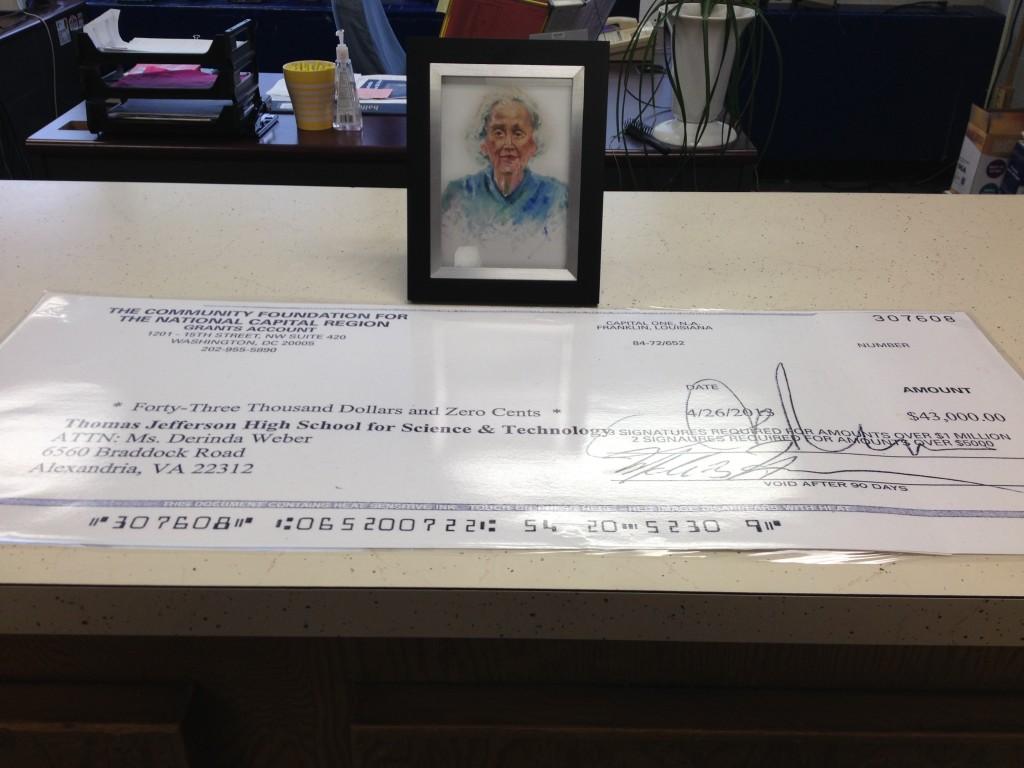 THE COMMUNITY FOUNDATION FOR
THE NATIONAL CAPITAL REGION
GRANTS ACCOUNT
1201 - 15TH STREET, NW SUITE 420
WASHINGTON, DC 20005
202-955-5890
CAPITAL ONE, N.A.
FRANKLIN, LOUISIANA
84-72/652
307608
NUMBER
DATE
4/26/2013
AMOUNT
$43,000.00
* Forty-Three Thousand Dollars and Zero Cents *
Thomas Jefferson High School for Science & Technology
ATTN: Ms. Derinda Weber
6560 Braddock Road
Alexandria, VA 22312
3 SIGNATURES REQUIRED FOR AMOUNTS OVER $1 MILLION
2 SIGNAURES REQUIRED FOR AMOUNTS OVER $5000
VOID AFTER 90 DAYS
THIS DOCUMENT CONTAINS HEAT SENSITIVE INK TOUCH OR PRESS HERE - RED IMAGE DISAPPEARS WITH HEAT
⑈307608⑈ ⑆065200722⑆ 54 20⑉5230 9⑈